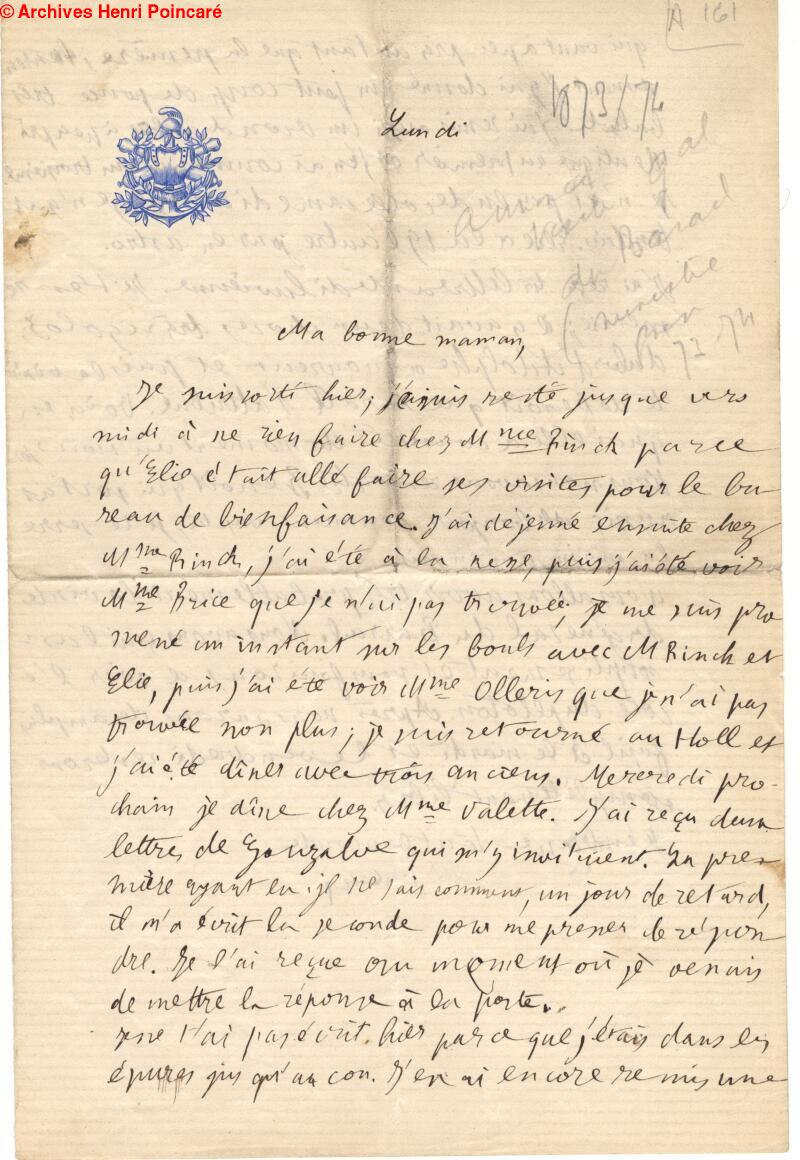 © Archives Henri Poincaré
A 161
1873/74
Lundi
Ma bonne maman,
Je suis sorti hier; je suis resté jusque vers
midi à ne rien faire chez Mme Rinck parce
qu'Elie était allé faire ses visites pour le bu
reau de bienfaisance. J'ai déjeuné ensuite chez
Mme Rinck, j'ai été à la messe, puis j'ai été voir
Mme Brice que je n'ai pas trouvée; je me suis pro
mené un instant sur les bouls avec M Rinck et
Elie, puis j'ai été voir Mme Olleris que je n'ai pas
trouvée non plus; je suis retourné au Holl et
j'ai été dîner avec trois anciens. Mercredi pro-
chain je dîne chez Mme Valette. J'ai reçu deux
lettres de Gonzalve qui m'y invitaient. La pre
mière ayant eu, je ne sais comment, un jour de retard,
il m'a écrit la seconde pour me presser de répon
dre. Je l'ai reçue au moment où je venais
de mettre la réponse à la poste.
Je ne t'ai pas écrit hier parce que j'étais dans les
épures jusqu'au cou. J'en ai encore remis une